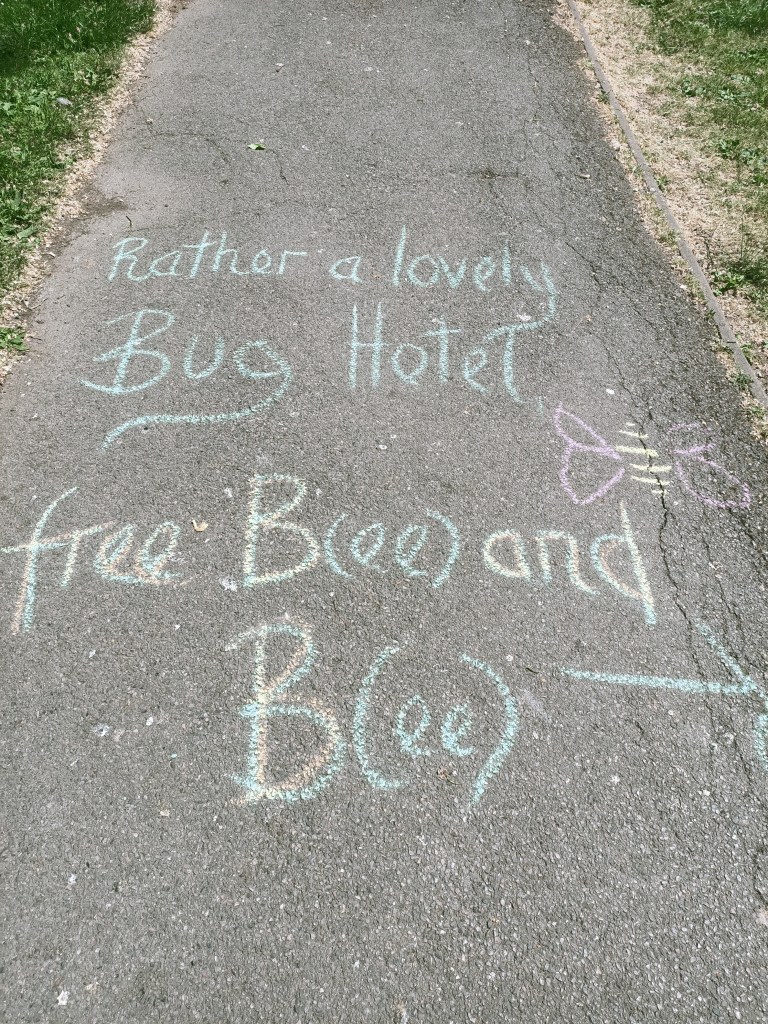 Rather a lovely
Bug Hotel
free B(ee) and
B(ee)